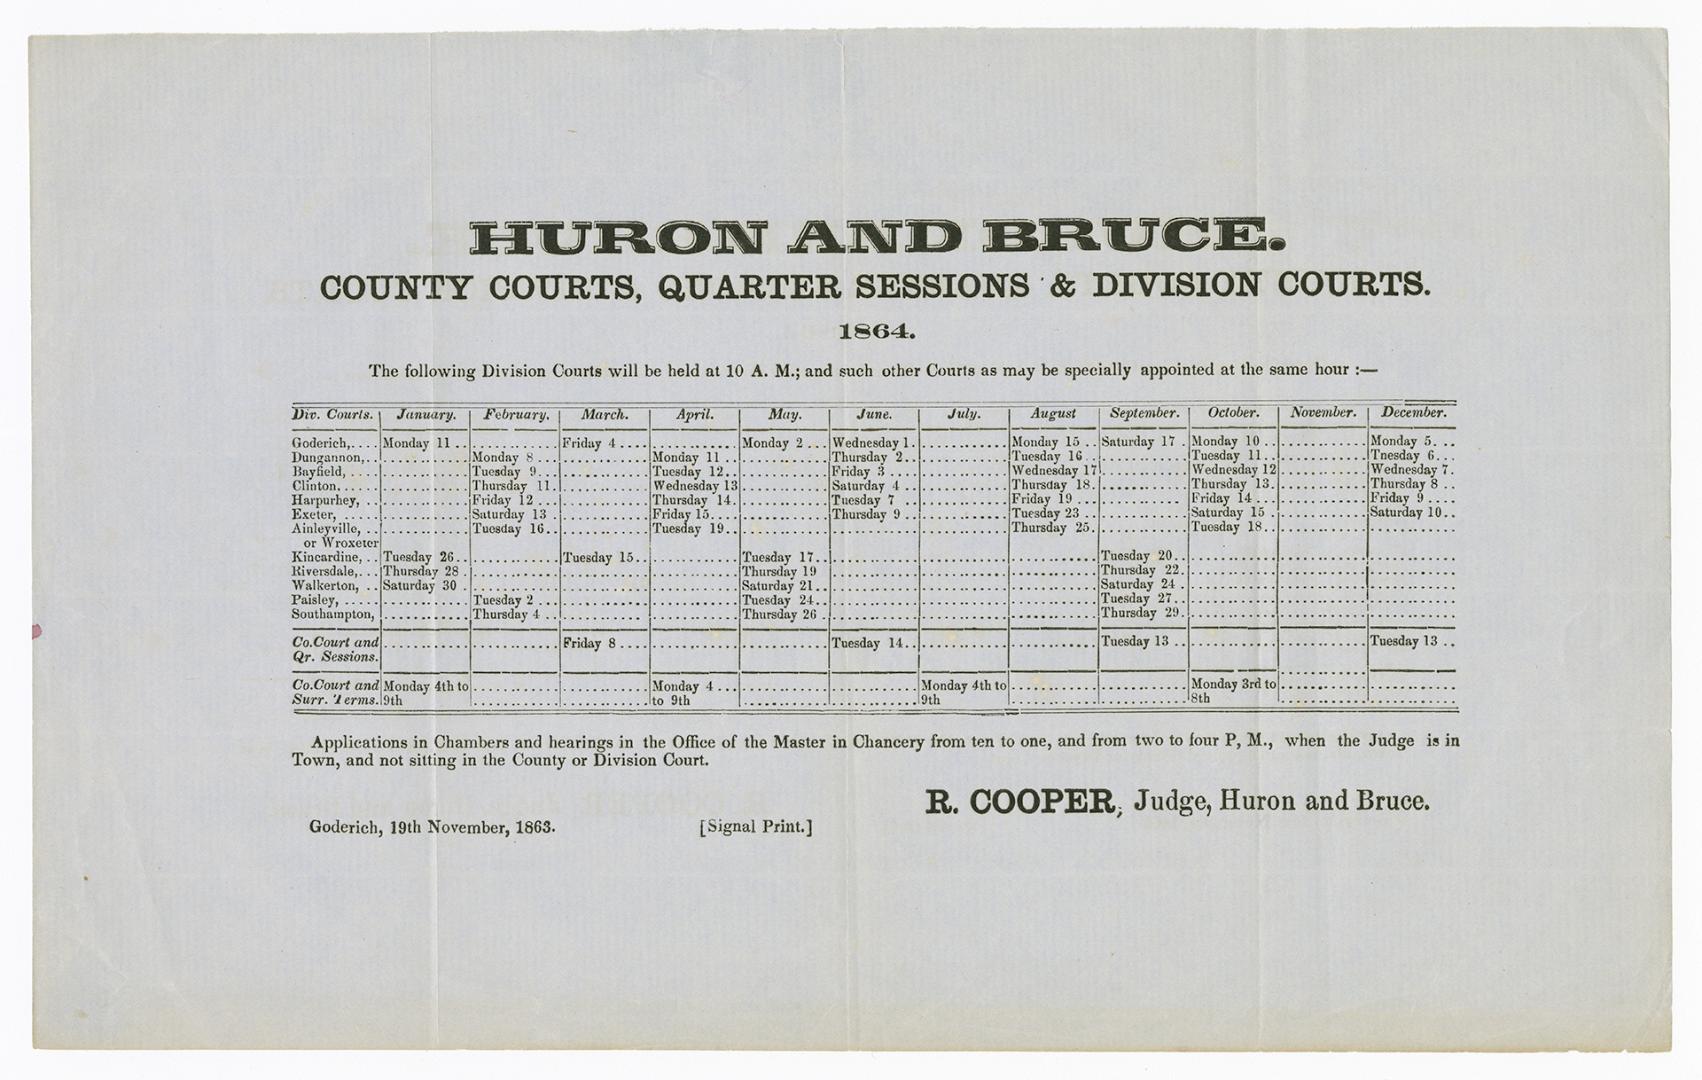 HURON AND BRUCE.
COUNTY COURTS, QUARTER SESSIONS & DIVISION COURTS.
1864.
The following Division Courts will be held at 10 A. M.; and such other Courts as may be specially appointed at the same hour :—
Div. Courts. January. February. March. April. May. June. July. August September. October. November. December.
Goderich,.... Monday 11 .. ........... Friday 4 .... ........... Monday 2 ... Wednesday 1. ........... Monday 15 .. Saturday 17 . Monday 10 .. ........... Monday 5. ...
Dungannon,.. ........... Monday 8 ... ........... Monday 11 .. ........... Thursday 2.. ........... Tuesday 16 .. ........... Tuesday 11.. ........... Tnesday 6...
Bayfield, .... ........... Tuesday 9... ........... Tuesday 12.. ........... Friday 3 .... ........... Wednesday 17 ........... Wednesday 12 ........... Wednesday 7.
Clinton...... ........... Thursday 11. ........... Wednesday 13 ........... Saturday 4 .. ........... Thursday 18. ........... Thursday 13. ........... Thursday 8 ..
Harpurhey, .. ........... Friday 12 ... ........... Thursday 14. ........... Tuesday 7 ........... Friday 19 ... ........... Friday 14 ... ........... Friday 9 ....
Exeter, ...... ........... Saturday 13 ........... Friday 15. ... ........... Thursday 9 .. ........... Tuesday 23 .. ........... Saturday 15 . ........... Saturday 10..
Ainleyville, .. ........... Tuesday 16.. ........... Tuesday 19.. ........... ........... ........... Thursday 25. ........... Tuesday 18.. ........... ...........
or Wroxeter
Kincardine, .. Tuesday 26.. ........... Tuesday 15.. ........... Tuesday 17.. ........... ........... ........... Tuesday 20.. ........... ........... ...........
Riversdale,.. Thursday 28 . ........... ........... ........... Thursday 19 ........... ........... ........... Thursday 22. ........... ........... ...........
Walkerton, .. Saturday 30 . ........... ........... ........... Saturday 21 .. ........... ........... ........... Saturday 24 . ........... ........... ...........
Paisley, ..... ........... Tuesday 2 ... ........... ........... Tuesday 24.. ........... ........... ........... Tuesday 27.. ........... ........... ...........
Southampton, ........... Thursday 4 .. ........... ........... Thursday 26 . ........... ........... ........... Thursday 29. ........... ........... ...........
Co.Court and ........... ........... Friday 8 .... ........... ........... Tuesday 14.. ........... ........... Tuesday 13 .. ........... ........... Tuesday 13 ..
Qr. Sessions.
Co.Court and Monday 4th to ........... ........... Monday 4 ... ........... ........... Monday 4th to ........... ........... Monday 3rd to ........... ...........
Surr. Terms. 9th ........... ........... to 9th ........... ........... 9th ........... ........... 8th ........... ...........
Applications in Chambers and hearings in the Office of the Master in Chancery from ten to one, and from two to four P, M., when the Judge is in
Town, and not sitting in the County or Division Court.
R. COOPER, Judge, Huron and Bruce.
Goderich, 19th November, 1863. [Signal Print.]